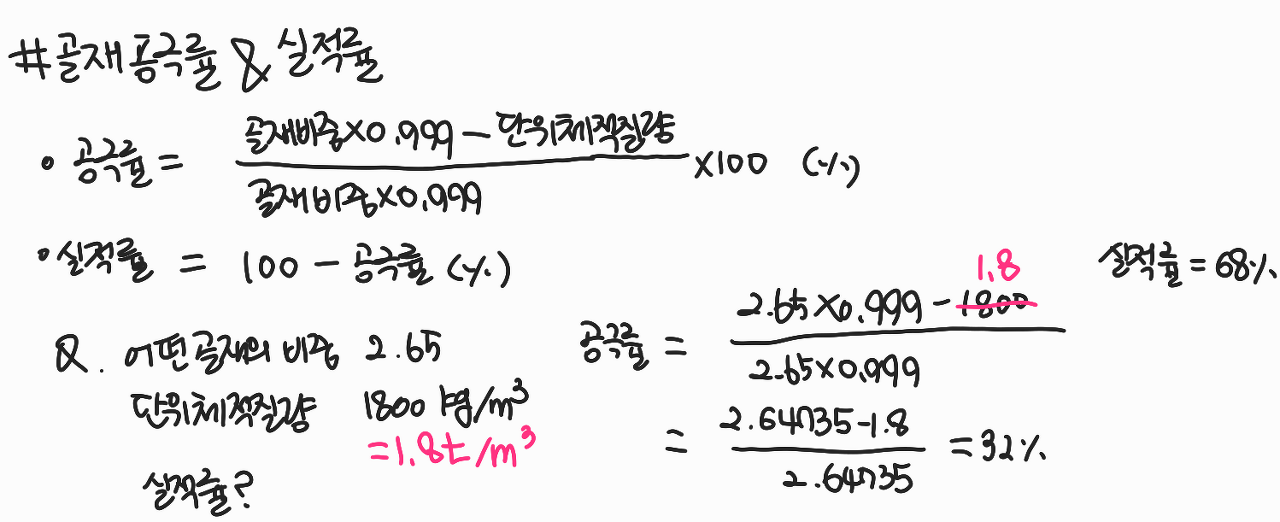 #골재공극률 & 실적률
• 공극률 = (골재비중×0.999 - 단위체적질량) / (골재비중×0.999) ×100 (%)
• 실적률 = 100 - 공극률 (%)
Q. 어떤골재의 비중 2.65
단위체적질량 1800 kg/m³
=1.8t/m³
실적률?
공극률 = (2.65×0.999 - 1800 1.8) / (2.65×0.999)
= (2.64735-1.8) / 2.64735 = 32%
실적률 = 68%